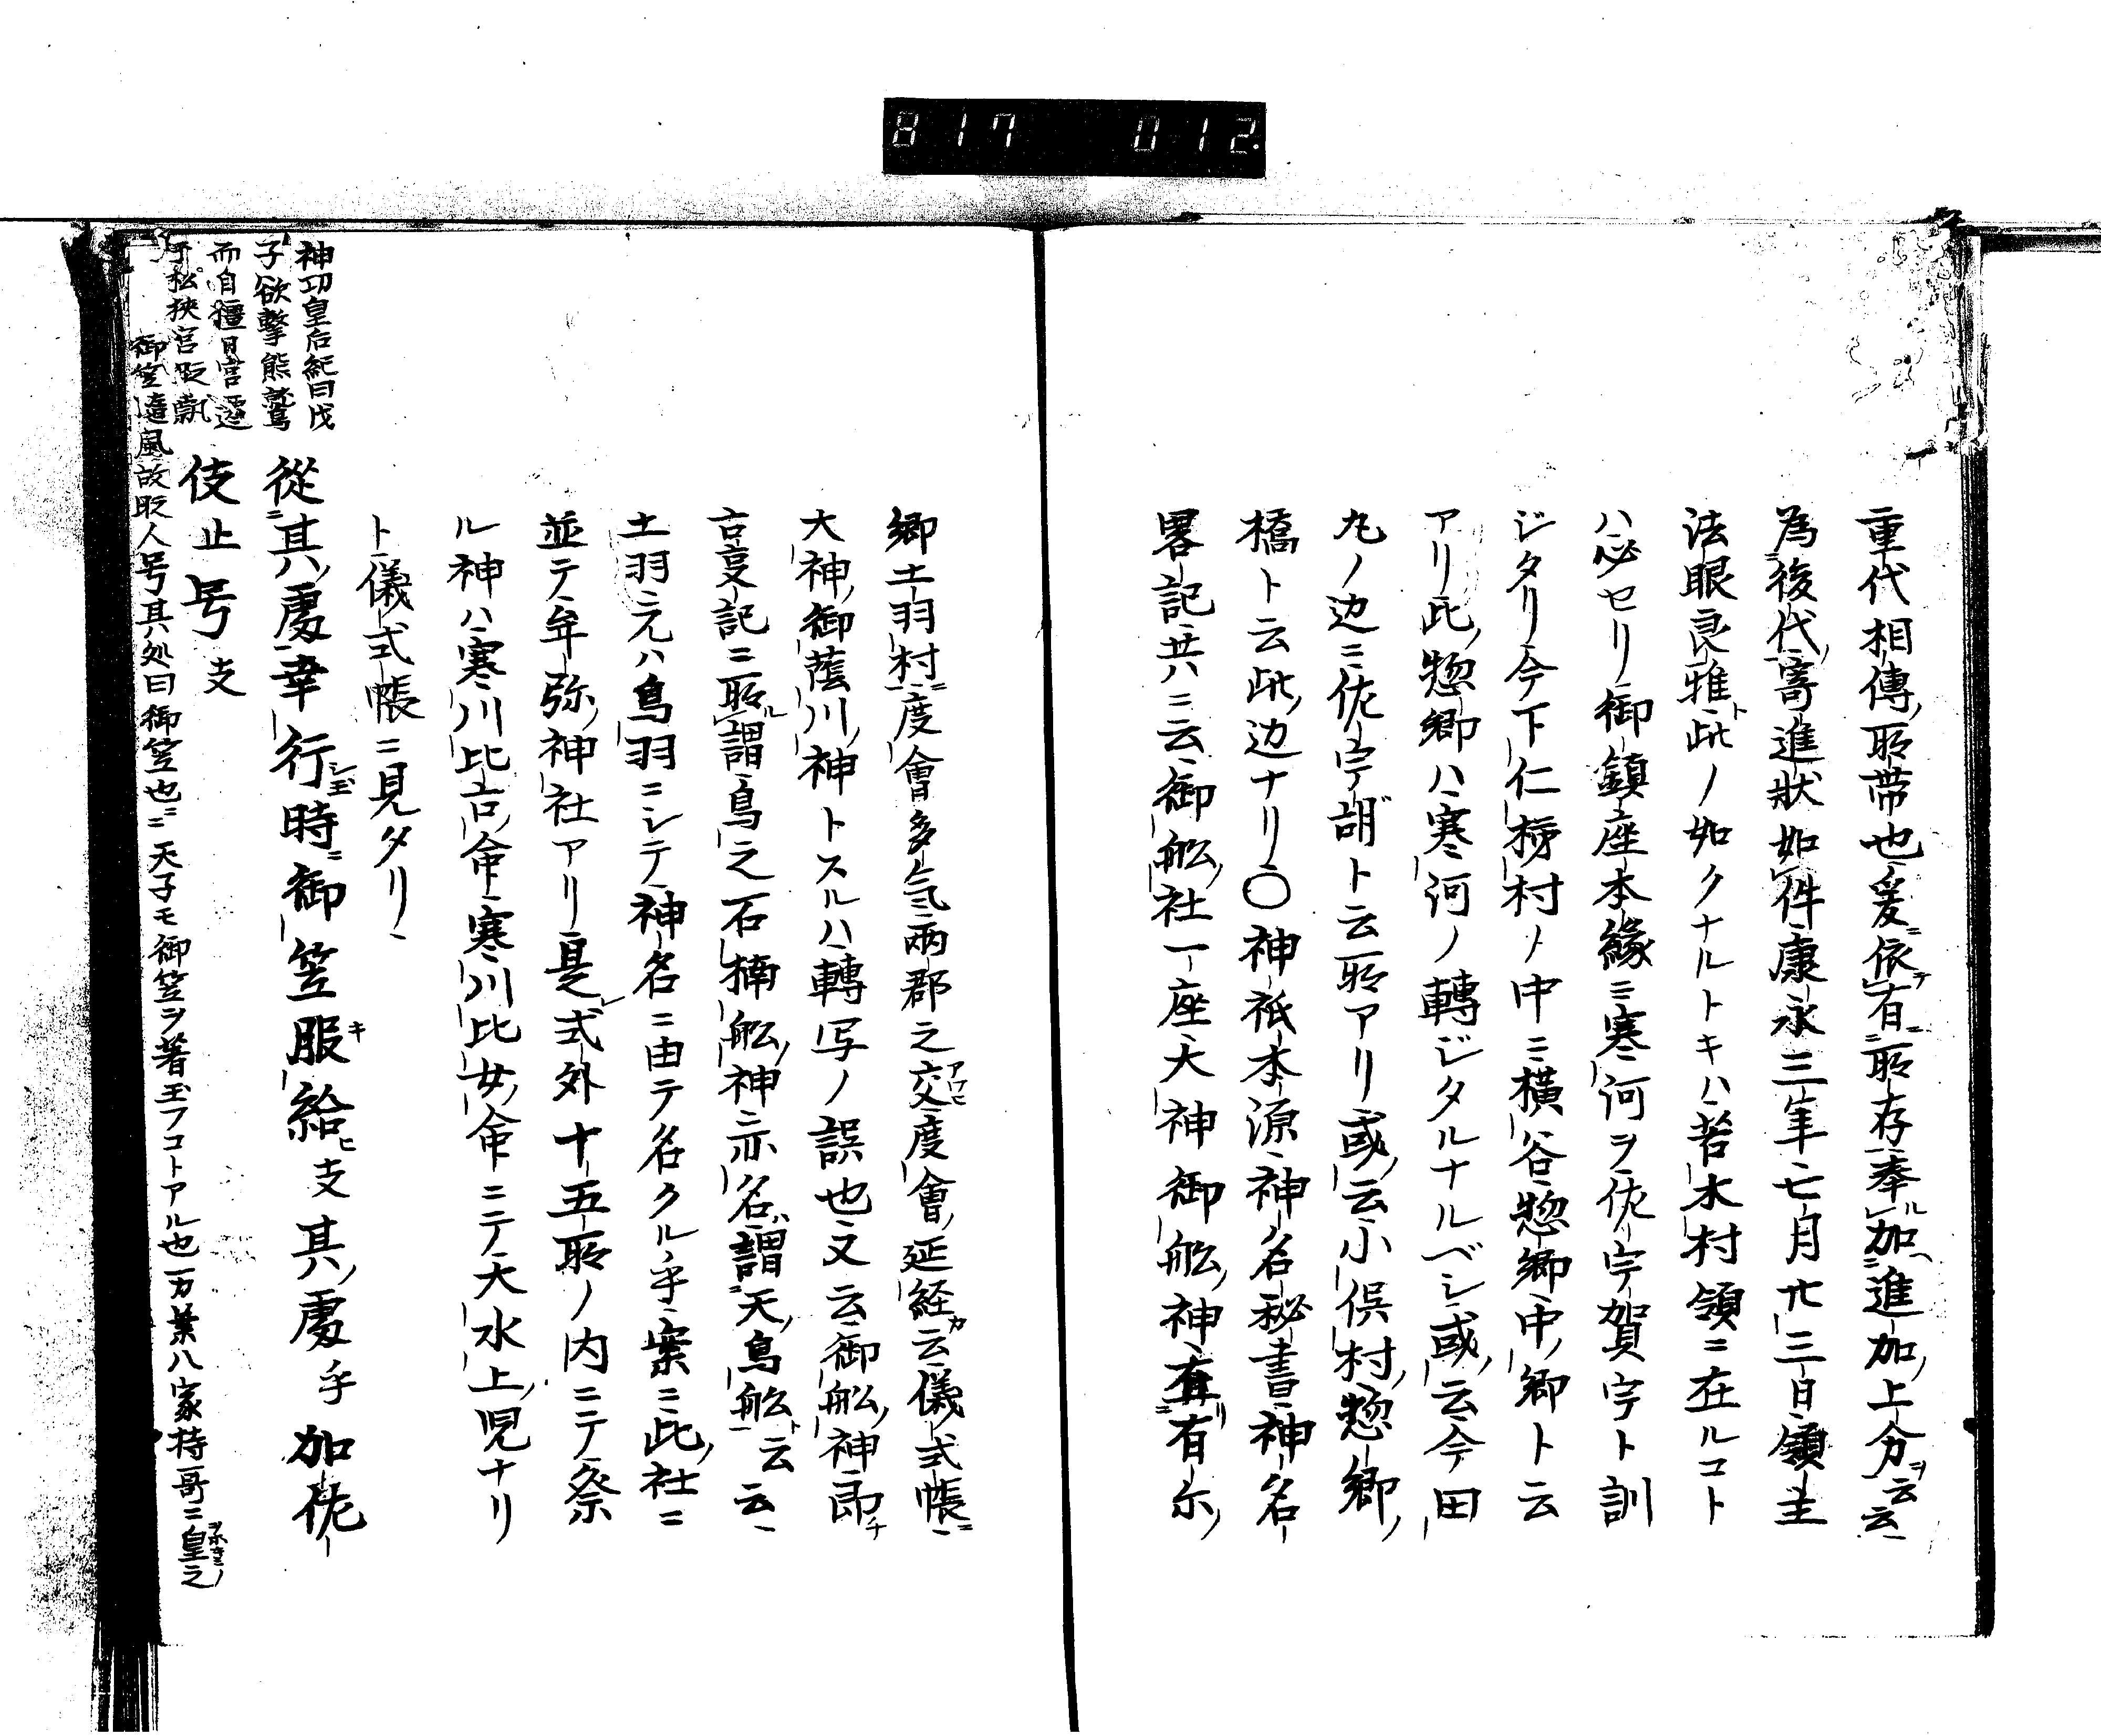 817 012
重代相傳所帯也爰ニ依テ有ニ所存奉ル加ヘ進加上分ヲ云云
為後代寄進狀如件康永三年七月廿三日領主
法眼良雅ト此ノ如クナルトキハ昔木村領ニ在ルコト
ハ必セリ御鎮座本緣ニ寒河ヲ佐宇賀宇ト訓
ジタリ今下仁村ノ中ニ横谷惣郷中郷ト云
アリ此惣郷ハ寒河ノ轉ジタルナルベシ或云今田
丸ノ边ニ佐宇胡ト云所アリ或云小俣村惣郷
橋ト云此边ナリ〇神祇本源神名秘書神名
畧記共ニ云御舩社一座大神御舩神在リ有尓
郷土羽村ニ度會多気兩郡之交アワヒ度會延経カ云儀式帳ニ
大神御蔭川神トスルハ轉写ノ誤也又云御舩神即チ
古叓記ニ所謂ル鳥之石楠舩神亦名ハ謂ニ天鳥舩ト云云
土羽元ハ鳥羽ニシテ神名ニ由テ名クル乎案ニ此社ニ
並テ牟弥神社アリ是レ式外十五所ノ内ニテ祭
ル神ハ寒川比古命寒川比女命ニテ大水上児ナリ
ト儀式帳ニ見タリ
從ニ其處幸行シ玉時ニ御笠服キ給ヒ支其處乎加佐
伎止号支
神功皇后紀曰戊
子欲擊熊鷲
而自橿日宮遷
于松峽宮時飄風
御笠隨風故時人号其処曰御笠也ニ天子モ御笠ヲ著玉フコトアル也万葉八家持哥ニ皇之